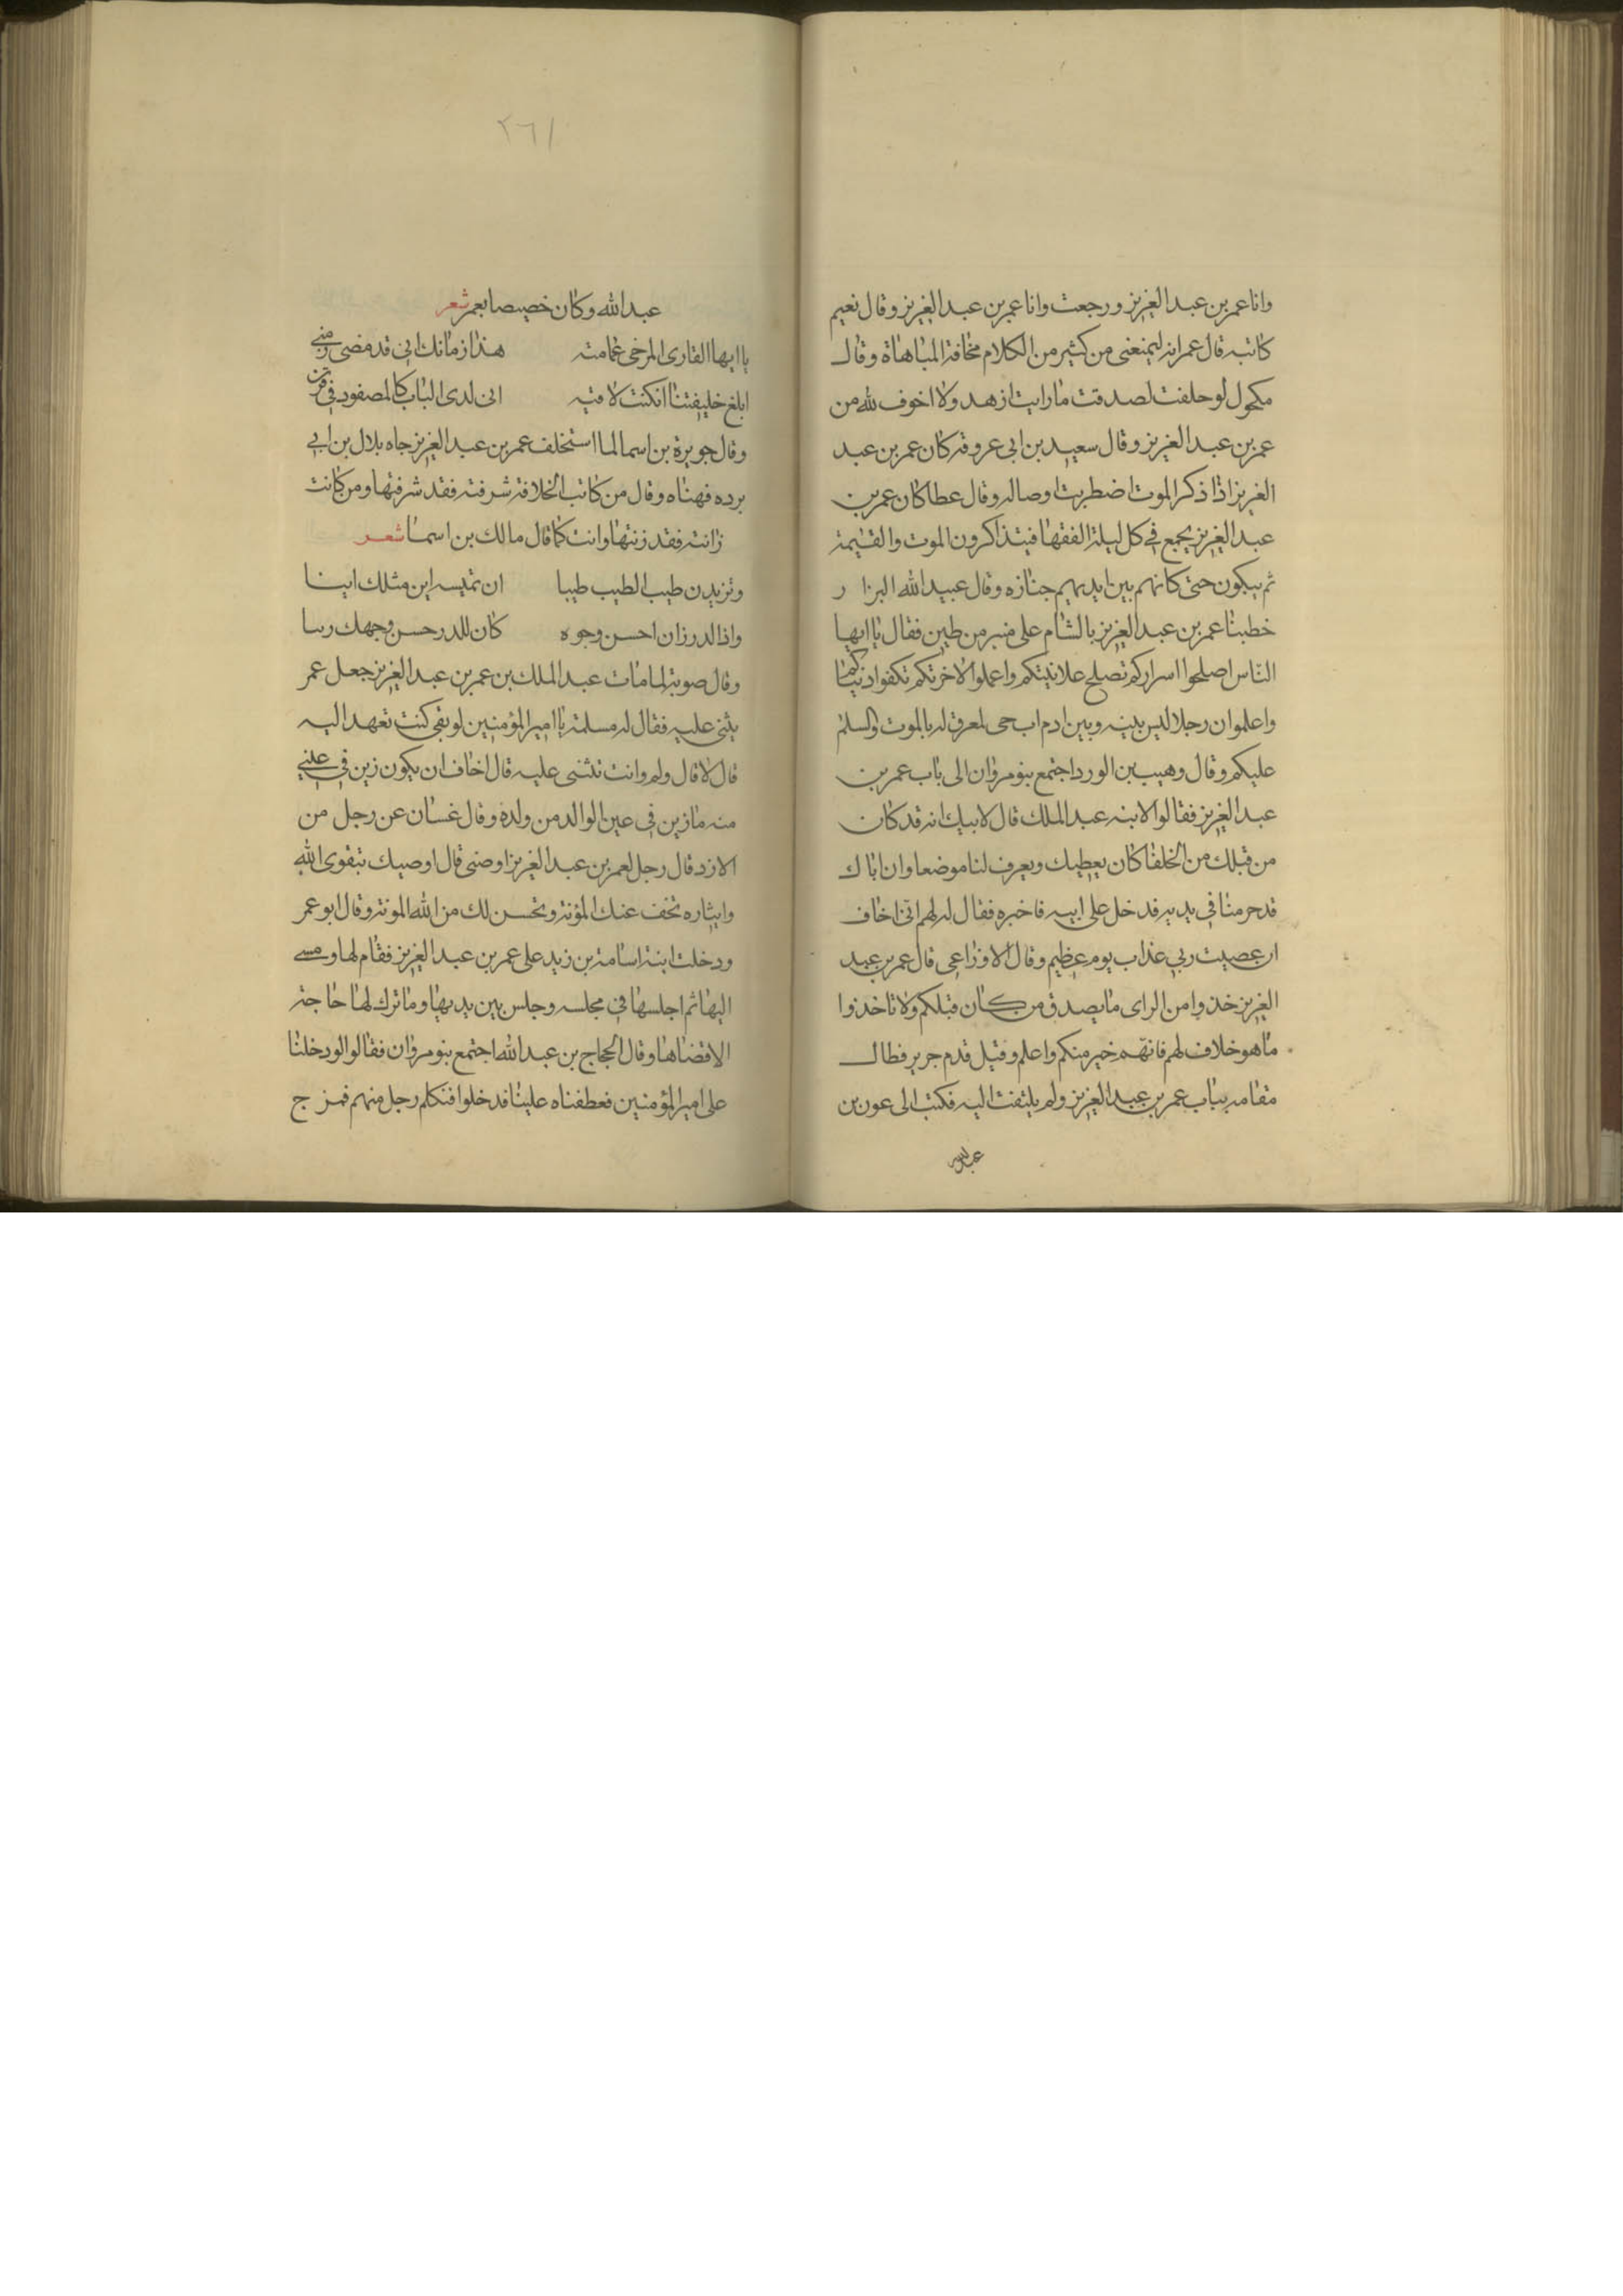 وانا عمر بن عبد العزيز ورجعت وانا عمر بن عبد العزيز وقال نعيم
كاتبه قال عمر انه ليمنعنى من كثير من الكلام مخافة المباهاة وقال
مكحول لو حلفت لصدقت ما رايت ازهد ولا اخوف لله من
عمر بن عبد العزيز وقال سعيد بن ابى عروة كان عمر بن عبد
العزيز اذا ذكر الموت اضطربت اوصاله وقال عطا كان عمر بن
عبد العزيز يجمع في كل ليلة الفقها فيتذاكرون الموت والقيمة
ثم يبكون حتى كانهم بين ايديهم جنازه وقال عبيد الله البزار
خطبنا عمر بن عبد العزيز بالشام على منبر من طين فقال يا ايها
الناس اصلحوا اسراركم تصلح علانيتكم واعملوا لاخرتكم تكفوا دنياكم
واعلموا ان رجلا ليس بينه وبين ادم اب حى لمعرق له بالموت والسلم
عليكم وقال وهيب بن الورد اجتمع بنو مروان الى باب عمر بن
عبد العزيز فقالوا لابنه عبد الملك قال لابيك انه قد كان
من قبلك من الخلفا كان يعطيك ويعرف لنا موضعا وان اباك
قد حرمنا في يديه فدخل على ابيه فاخبره فقال له لهم انى اخاف
ان عصيت ربي عذاب يوم عظيم وقال الاوزاعى قال عمر بن عبد
العزيز خذوا من الراى ما يصدق من كان قبلكم ولا تاخذوا
ما هو خلاف لهم فانهم خير منكم واعلم وقيل قدم جرير فطال
مقامه بباب عمر بن عبد العزيز ولم يلتفت اليه فكتب الى عون بن
عبد الله
٢٦١
عبد الله وكان خصيصا بعمر شعر
يا ايها القارى المرخى عمامته هذا زمانك انى قد مضى زمنى
ابلغ خليفتنا ان كنت لاقيه انى لدى الباب كالمصفود فى قرن
وقال جويرة بن اسما لما استخلف عمر بن عبد العزيز جاه بلال بن ابى
برده فهناه وقال من كانت الخلافة شرفته فقد شرفتها ومن كانت
زانته فقد زنتها وانت كما قال مالك بن اسما شعر
وتزيدن طيب الطيب طيبا ان تمسه اين مثلك اينا
واذا الدر زان احسن وجوه كان للدر حسن وجهك زينا
وقال صوبة لما مات عبد الملك بن عمر بن عبد العزيز جعل عمر
يثنى عليه فقال له مسلمة يا امير المؤمنين لو بقى كنت تعهد اليه
قال لا قال ولم وانت تثنى عليه قال اخاف ان يكون زين فى عينى
منه ما زين فى عين الوالد من ولده وقال غسان عن رجل من
الازد قال رجل لعمر بن عبد العزيز اوصنى قال اوصيك بتقوى الله
وايثاره تخف عنك المؤنة وتحسن لك من الله المونة وقال ابو عمر
ودخلت ابنة اسامة بن زيد على عمر بن عبد العزيز فقام لها ومسى
اليها ثم اجلسها في مجلسه وجلس بين يديها وما ترك لها حاجة
الا قضاها وقال الحجاج بن عبد الله اجتمع بنو مروان فقالوا لو دخلنا
على امير المؤمنين فعطفناه علينا فدخلوا فتكلم رجل منهم فمزح